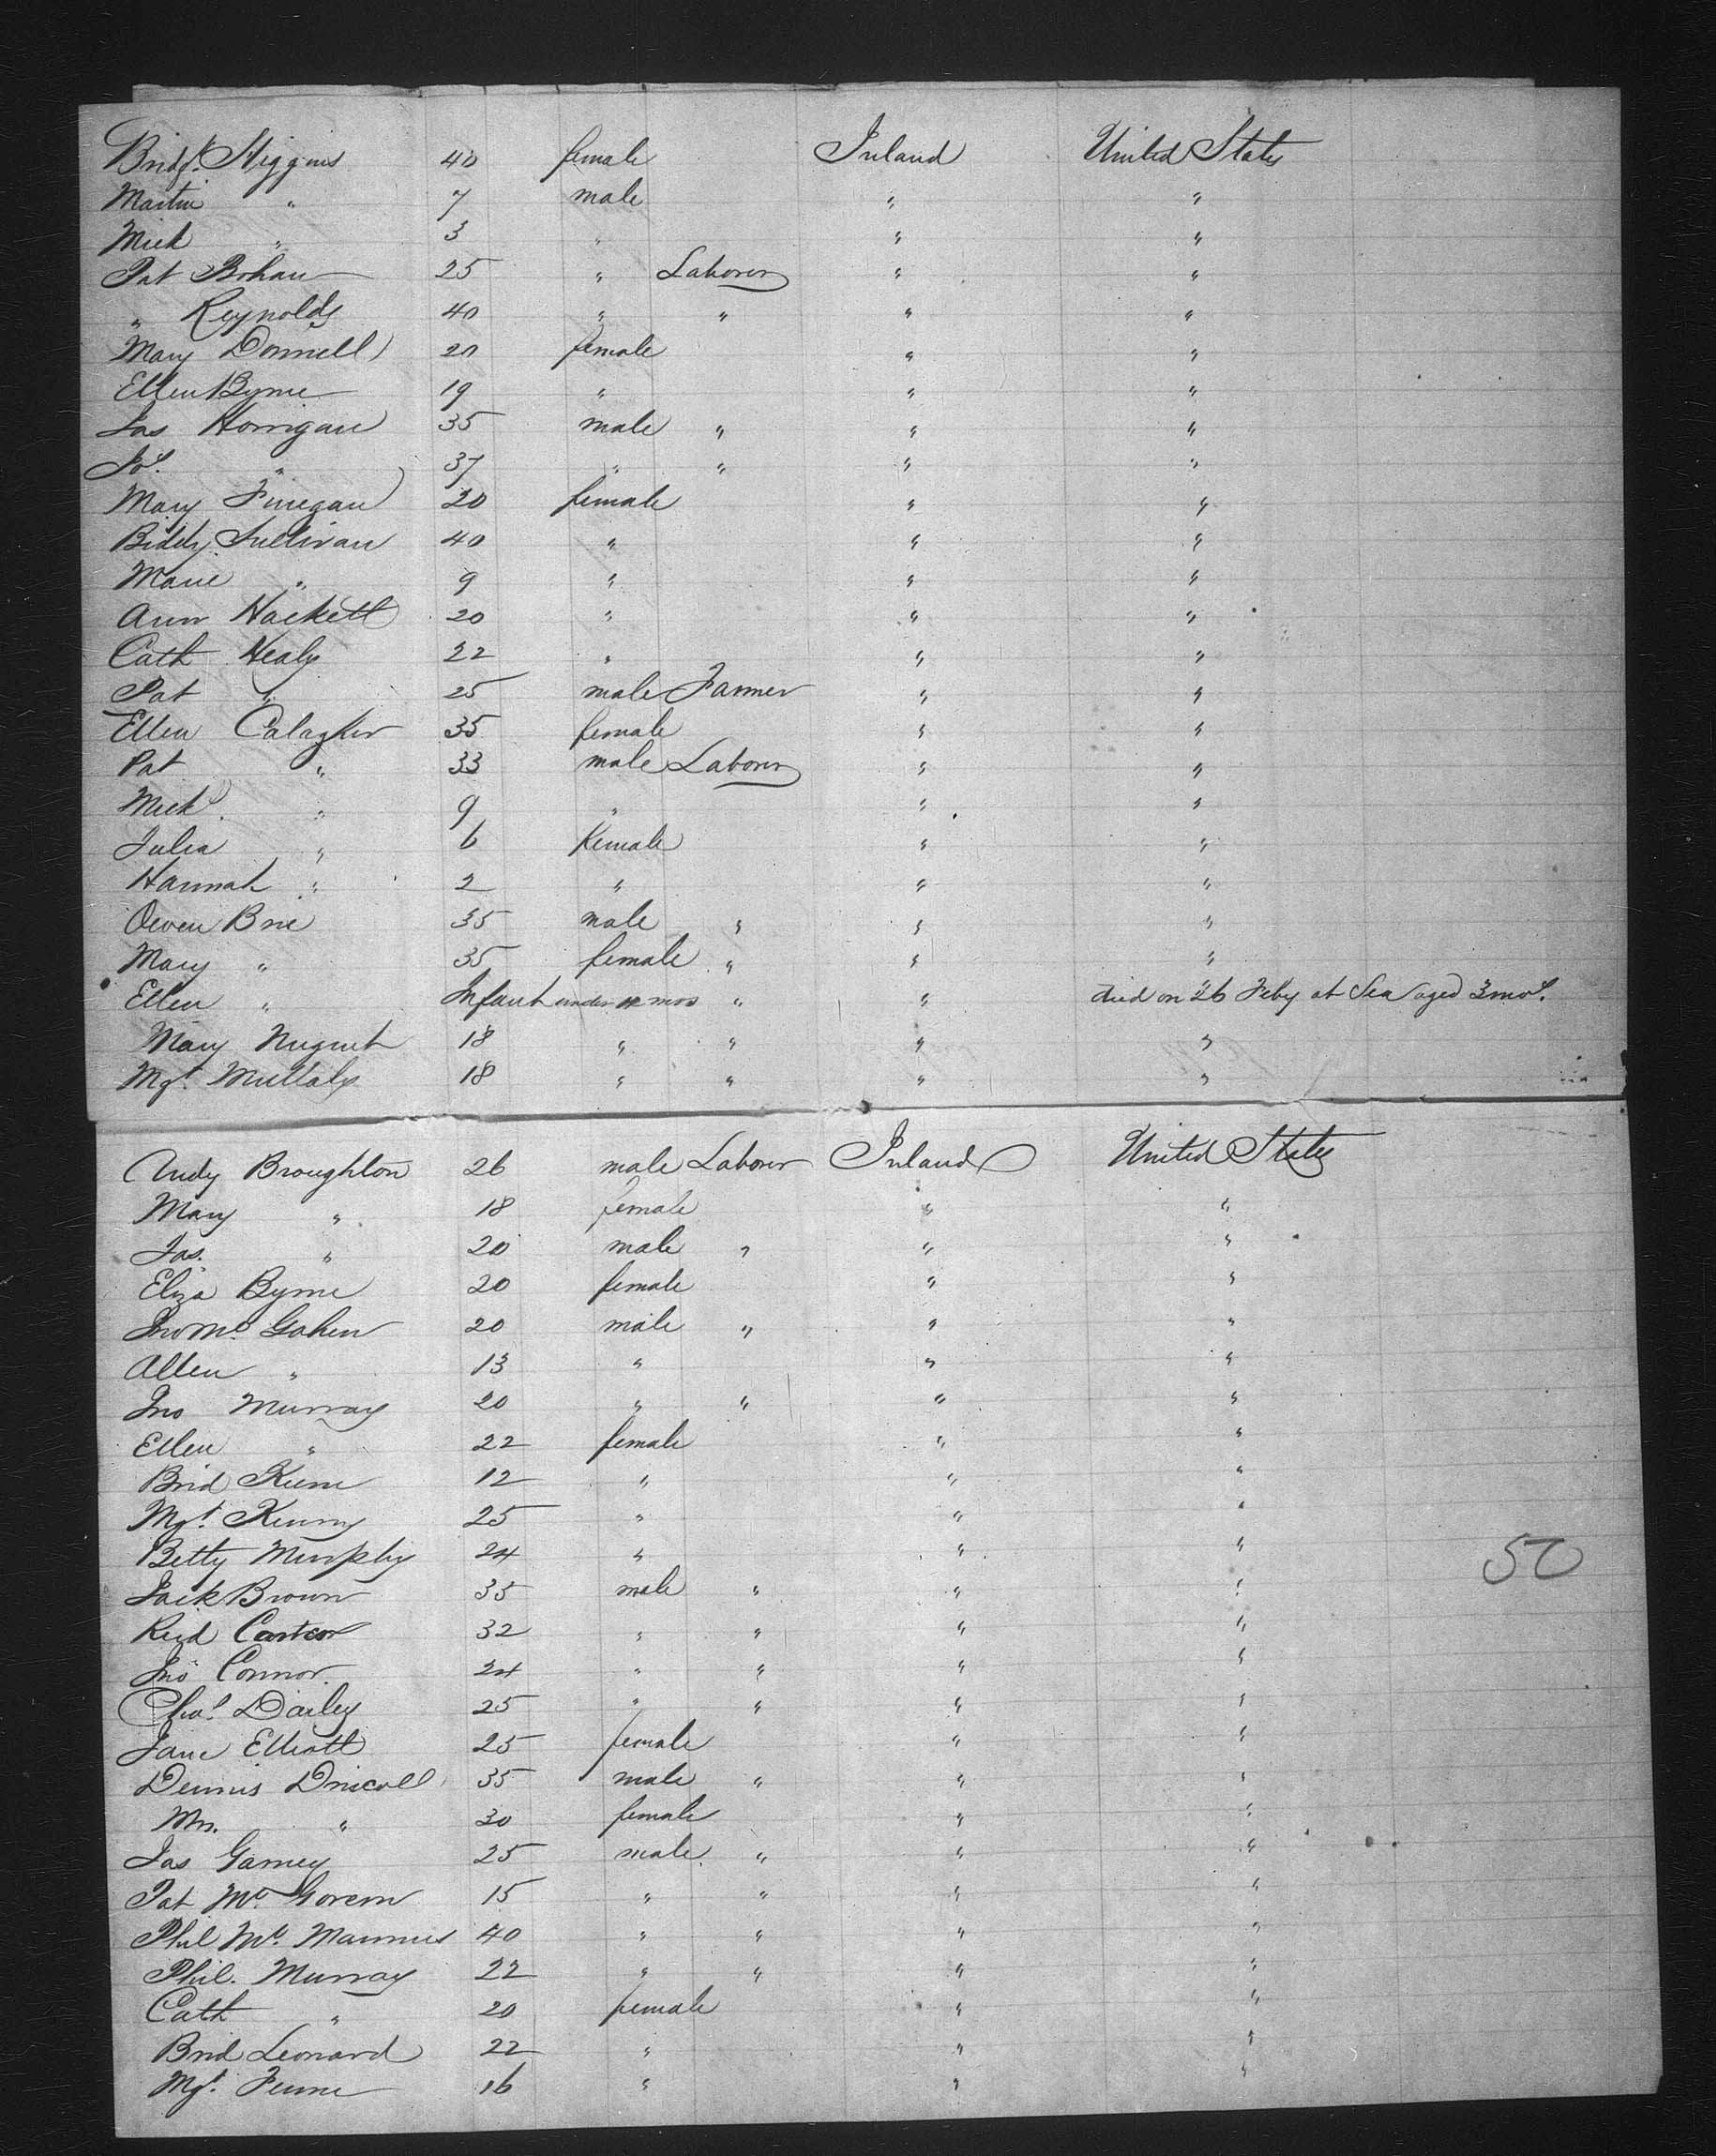 Bridgt. Higgins 40 female Ireland United States
Martin " 7 male " "
Mich " 3 " " "
Pat Bohan 25 " Laborer " "
" Reynolds 40 " " " "
Mary Donnell 20 female " "
Ellen Byrne 19 " " "
Jas Horrigan 35 male " " "
Jos. " 37 " " " "
Mary Finegan 20 female " "
Biddy Sullivan 40 " " "
Marie " 9 " " "
Ann Hackett 20 " " "
Cath Healy 22 " " "
Pat " 25 male Farmer " "
Ellen Calagher 35 female " "
Pat " 33 male Laborer " "
Mich. " 9 " " "
Julia " 6 female " "
Hannah " 2 " " "
Owen Brie 35 male " " "
Mary " 35 female " " "
Ellen " Infant under mos " " died on 26 Feby at Sea aged 3 mos.
Mary Nugent 18 " " " "
Mgt. Mullaly 18 " " " "
Andy Broughton 26 male Laborer Ireland United States
Mary " 18 female " "
Jas. " 20 male " " "
Eliza Byrne 20 female " "
Jno Mc. Gahen 20 male " " "
Allen " 13 " " "
Jno Murray 20 " " " "
Ellen " 22 female " "
Brid Keene 12 " " "
Mgt. Kenny 25 " " "
Betty Murphy 24 " " "
50
Jack Brown 35 male " " "
Reid Carter 32 " " " "
Jno Connor 24 " " " "
Chas. Dailey 25 " " " "
Jane Elliott 25 female " "
Dennis Driscoll 35 male " " "
Mrs. " 30 female " "
Jas Garney 25 male " " "
Pat Mc. Govern 15 " " " "
Phil Mc. Mannus 40 " " " "
Phil. Murray 22 " " " "
Cath " 20 female " "
Brid Leonard 22 " " "
Mgt. 16 " " "